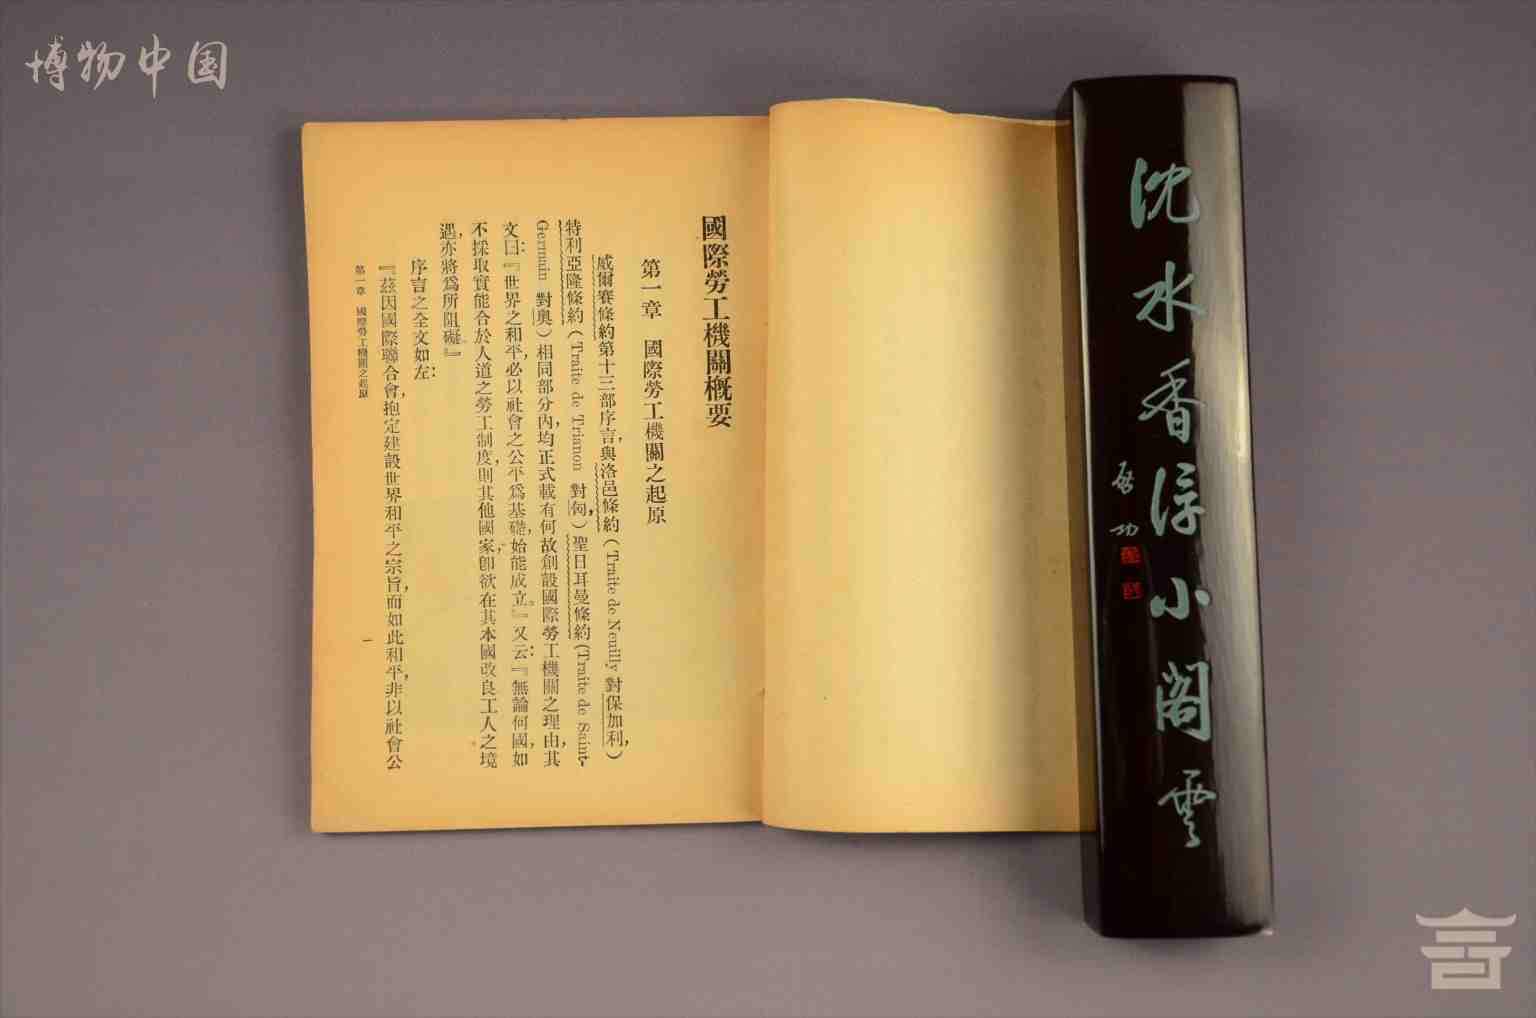 博物中国
國際勞工機關槪要
第一章　國際勞工機關之起原
威爾賽條約第十三部序言，與洛邑條約（Traite de Neuilly 對保加利，）
特利亞隆條約（Traite de Trianon 對匈，）聖日耳曼條約（Traite de Saint-
Germain 對奧）相同部分內，均正式載有何故創設國際勞工機關之理由，其
文曰：『世界之和平，必以社會之公平爲基礎，始能成立。』又云：『無論何國，如
不採取實能合於人道之勞工制度，則其他國家，卽欲在其本國改良工人之境
遇，亦將爲所阻礙。』
序言之全文如左：
『茲因國際聯合會，抱定建設世界和平之宗旨，而如此和平，非以社會公
第一章　國際勞工機關之起原
一
沈水香浮小閣雲
啟功